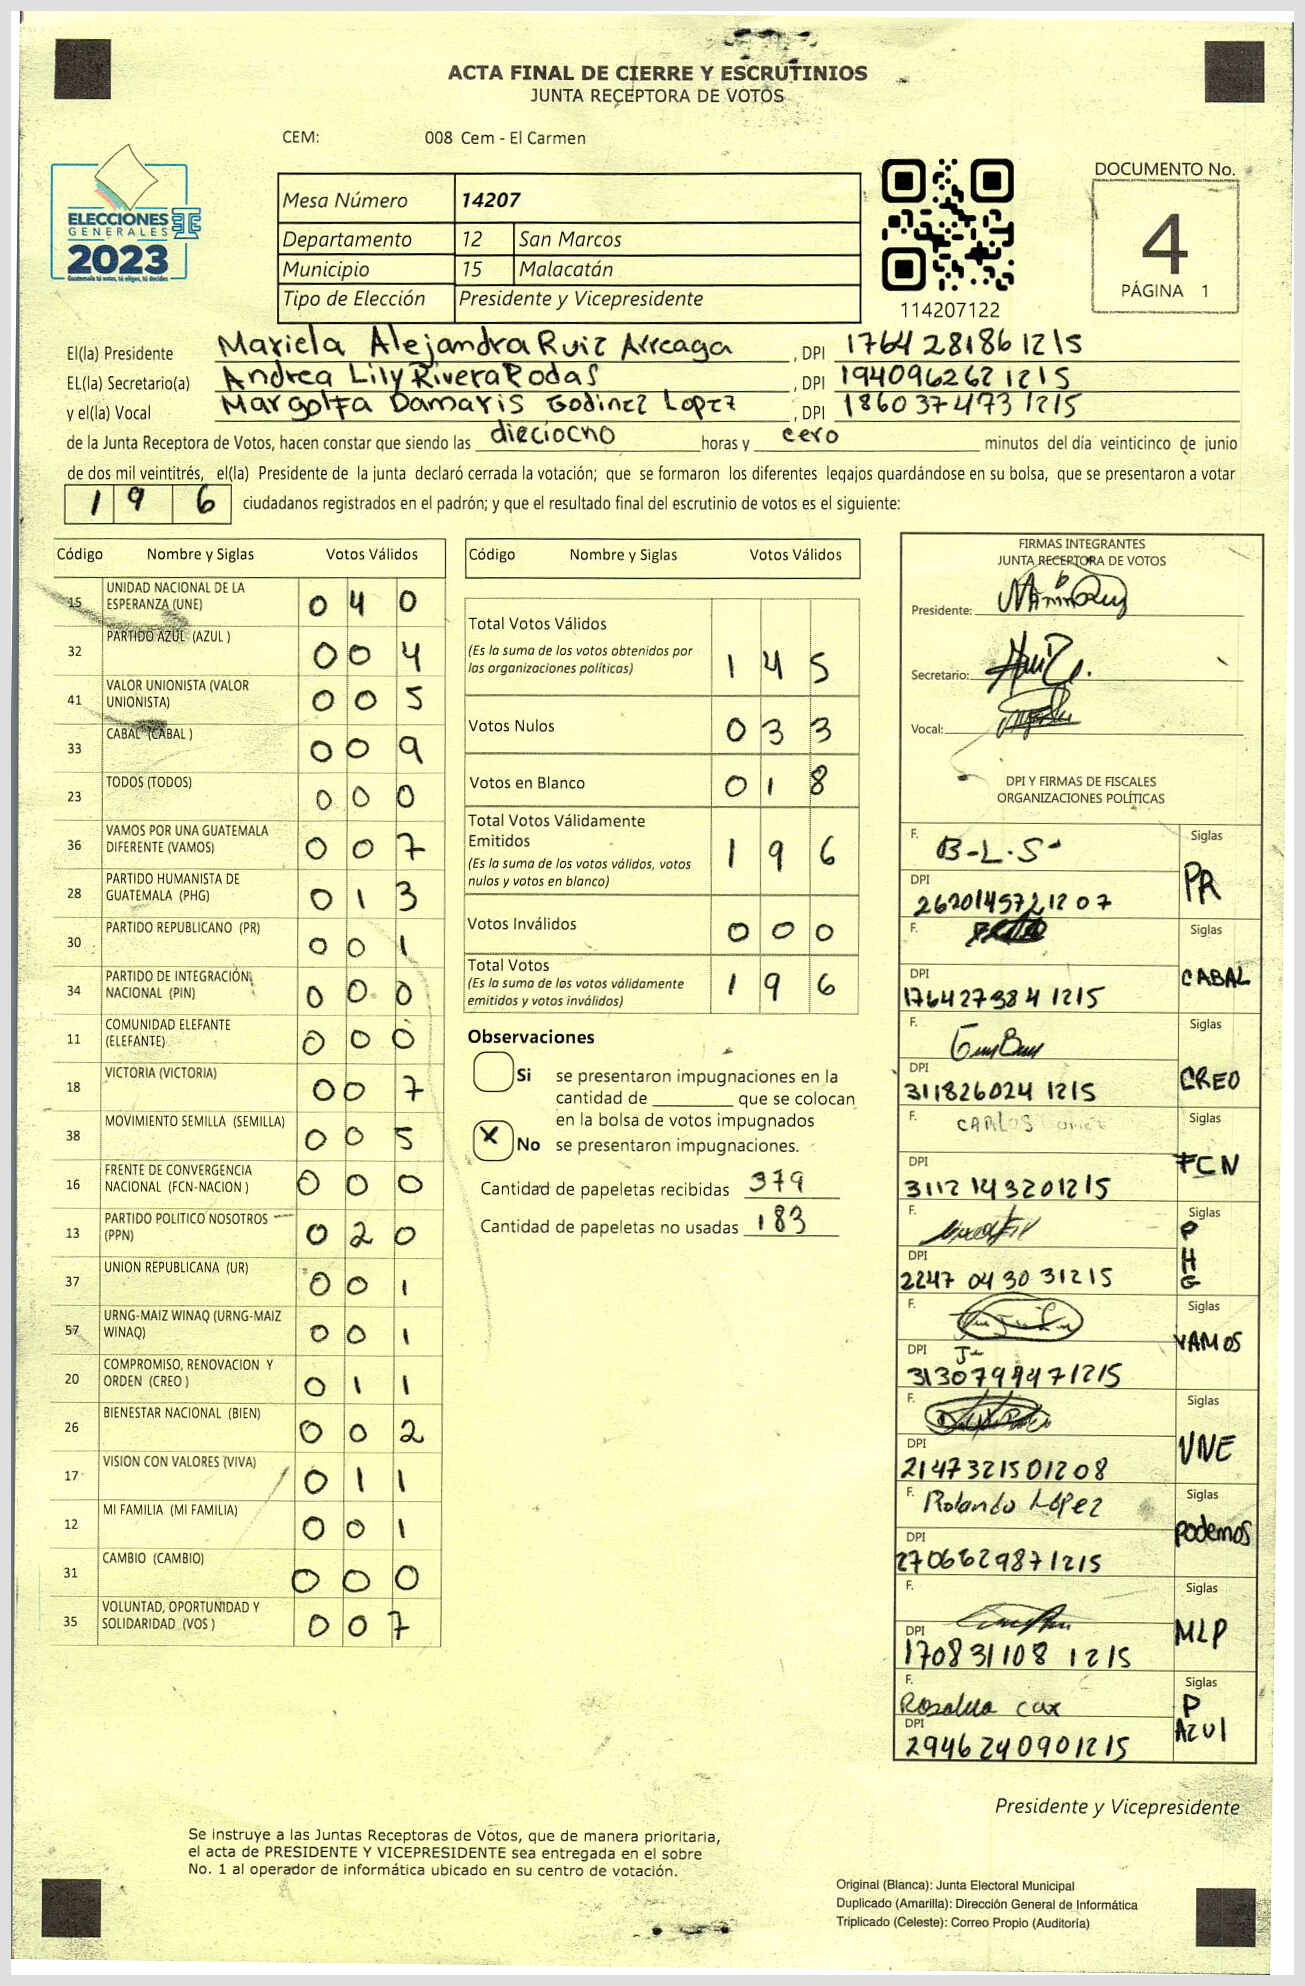 ACTA FINAL DE CIERRE Y ESCRUTINIOS
JUNTA RECEPTORA DE VOTOS
CEM: 008 Cem - El Carmen
ELECCIONES
GENERALES
2023
Guatemala tú votas, tú eliges, tú decides
Mesa Número 14207
Departamento 12 San Marcos
Municipio 15 Malacatán
Tipo de Elección Presidente y Vicepresidente
114207122
DOCUMENTO No.
4
PÁGINA 1
El(la) Presidente Mariela Alejandra Ruiz Arreaga , DPI 1764 28186 1215
EL(la) Secretario(a) Andrea Lily Rivera Rodas , DPI 194096262 1215
y el(la) Vocal Margolfa Damaris Godinez Lopez , DPI 1860 37473 1215
de la Junta Receptora de Votos, hacen constar que siendo las dieciocho horas y cero minutos del día veinticinco de junio
de dos mil veintitrés, el(la) Presidente de la junta declaró cerrada la votación; que se formaron los diferentes legajos quardándose en su bolsa, que se presentaron a votar
196 ciudadanos registrados en el padrón; y que el resultado final del escrutinio de votos es el siguiente:
Código Nombre y Siglas Votos Válidos
15 UNIDAD NACIONAL DE LA ESPERANZA (UNE) 0 4 0
32 PARTIDO AZUL (AZUL ) 0 0 4
41 VALOR UNIONISTA (VALOR UNIONISTA) 0 0 5
33 CABAL (CABAL ) 0 0 9
23 TODOS (TODOS) 0 0 0
36 VAMOS POR UNA GUATEMALA DIFERENTE (VAMOS) 0 0 7
28 PARTIDO HUMANISTA DE GUATEMALA (PHG) 0 1 3
30 PARTIDO REPUBLICANO (PR) 0 0 1
34 PARTIDO DE INTEGRACIÓN NACIONAL (PIN) 0 0 0
11 COMUNIDAD ELEFANTE (ELEFANTE) 0 0 0
18 VICTORIA (VICTORIA) 0 0 7
38 MOVIMIENTO SEMILLA (SEMILLA) 0 0 5
16 FRENTE DE CONVERGENCIA NACIONAL (FCN-NACION ) 0 0 0
13 PARTIDO POLITICO NOSOTROS (PPN) 0 2 0
37 UNION REPUBLICANA (UR) 0 0 1
57 URNG-MAIZ WINAQ (URNG-MAIZ WINAQ) 0 0 1
20 COMPROMISO, RENOVACION Y ORDEN (CREO ) 0 1 1
26 BIENESTAR NACIONAL (BIEN) 0 0 2
17 VISION CON VALORES (VIVA) 0 1 1
12 MI FAMILIA (MI FAMILIA) 0 0 1
31 CAMBIO (CAMBIO) 0 0 0
35 VOLUNTAD, OPORTUNIDAD Y SOLIDARIDAD (VOS ) 0 0 7
Código Nombre y Siglas Votos Válidos
Total Votos Válidos
(Es la suma de los votos obtenidos por las organizaciones políticas) 1 4 5
Votos Nulos 0 3 3
Votos en Blanco 0 1 8
Total Votos Válidamente Emitidos
(Es la suma de los votos válidos, votos nulos y votos en blanco) 1 9 6
Votos Inválidos 0 0 0
Total Votos
(Es la suma de los votos válidamente emitidos y votos inválidos) 1 9 6
Observaciones
Si se presentaron impugnaciones en la
cantidad de ________ que se colocan
en la bolsa de votos impugnados
X No se presentaron impugnaciones.
Cantidad de papeletas recibidas 379
Cantidad de papeletas no usadas 183
FIRMAS INTEGRANTES
JUNTA RECEPTORA DE VOTOS
Presidente:
Secretario:
Vocal:
DPI Y FIRMAS DE FISCALES
ORGANIZACIONES POLÍTICAS
F. B-L-S Siglas
DPI PR
F. Siglas
DPI 176427384 1215 CABAL
F. Siglas
DPI 311826024 1215 CREO
F. CARLOS Siglas
DPI 3112 143201215 FCN
F. Siglas
DPI 2247 0430 31215 PHG
F. Siglas
DPI VAMOS
F. Siglas
DPI 2147321501208 UNE
F. Rolando López Siglas
DPI 2706629871215 Podemos
F. Siglas
DPI 170831108 1215 MLP
F. Rosalda cax Siglas
DPI 2946240901215 P AZUl
Presidente y Vicepresidente
Se instruye a las Juntas Receptoras de Votos, que de manera prioritaria,
el acta de PRESIDENTE Y VICEPRESIDENTE sea entregada en el sobre
No. 1 al operador de informática ubicado en su centro de votación.
Original (Blanca): Junta Electoral Municipal
Duplicado (Amarilla): Dirección General de Informática
Triplicado (Celeste): Correo Propio (Auditoría)